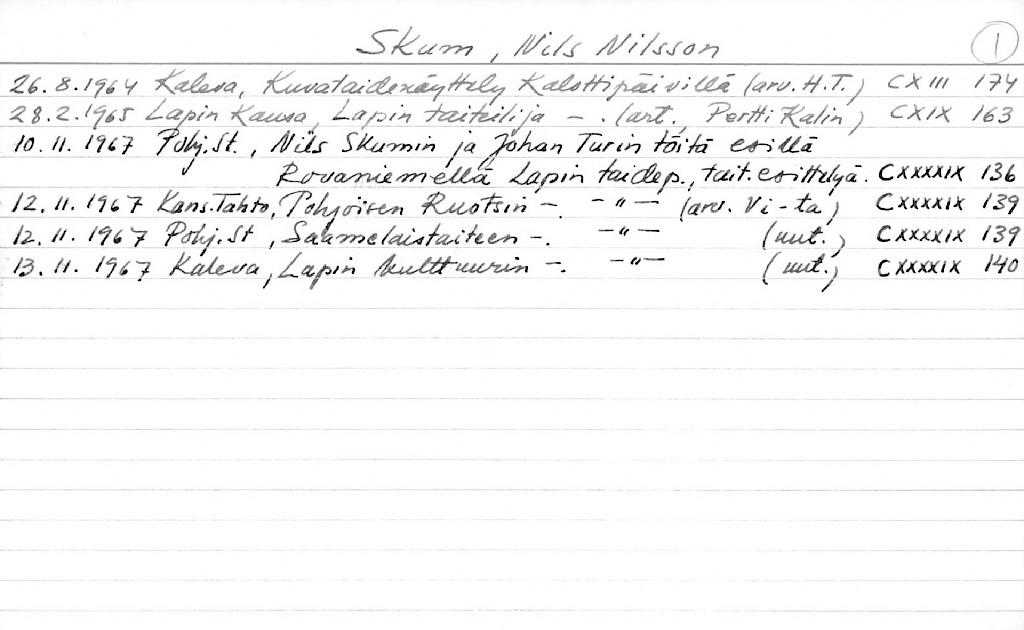 Skum, Nils Nilsson 1
26.8.1964 Kaleva, Kuvataidenäyttely Kalottipäivillä (arv. H.T.) CXIII 174
28.2.1965 Lapin Kansa, Lapin taiteilija -. (art. Pertti Kalin) CXIX 163
10.11.1967 Pohj.St., Nils Skumin ja Johan Turin töitä esillä
Rovaniemellä Lapin taidep., tait. esittelyä. CXXXXIX 136
12.11.1967 Kans.Tahto, Pohjoisen Ruotsin -. -"- (arv. Vi-ta) CXXXXIX 139
12.11.1967 Pohj.St, Saamelaistaiteen -. -"- (uut.) CXXXXIX 139
13.11.1967 Kaleva, Lapin kulttuurin -. -"- (uut.) CXXXXIX 140